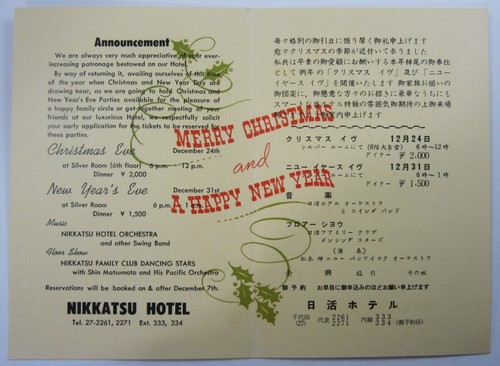 Announcement
We are always very much appreciative of your ever-
increasing patronage bestowed on our Hotel.
By way of returning it, availing ourselves of this time
of the year when Christmas and New Year Day are
drawing near, as we are going to hold Christmas and
New Year's Eve Parties available for the pleasure of
a happy family circle or get-together meeting of your
friends at our luxurious Hotel, we respectfully solicit
your early application for the tickets to be reserved for
these parties.
Christmas Eve December 24th
at Silver Room (6th floor) 6 p.m. - 12 p.m.
Dinner ¥ 2,000
New Year's Eve December 31st
at Silver Room 6 p.m. - 1 a.m.
Dinner ¥ 1,500
Music
NIKKATSU HOTEL ORCHESTRA
and other Swing Band
Floor Show
NIKKATSU FAMILY CLUB DANCING STARS
with Shin Matsumoto and His Pacific Orchestra
Reservations will be booked on & after December 7th.
NIKKATSU HOTEL
Tel. 27-2261, 2271 Ext. 333, 334
MERRY CHRISTMAS
and
A HAPPY NEW YEAR
毎々格別の御引立に預り厚く御礼申上げます
愈々クリスマスの季節が近付いて参りました
私共は平素の御愛顧にお酬いする本年掉尾の御奉仕
として例年の「クリスマス イヴ」及び「ニュー
イヤース イヴ」を開催いたします 御家族お揃いの
御団楽に、御懇意な方々のお招きに豪華なうちにも
スマートな 特独の雰囲気御期待の上御来場
御案内申上げます
クリスマス イヴ 12月24日
シルバー ルームにて (6階大食堂) 6時~12時
ディナー ¥ 2,000
ニュー イヤース イヴ 12月31日
ルームにて 6時~1時
ディナー ¥ 1,500
音楽
日活ホテル オーケストラ
と スイング バンド
フロアー ショウ
日活ファミリー クラブ
ダンシング スターズ
(演奏)
松本伸 ニュー パシフィック オーケストラ
余興 福引 その他
御予約 お早目に御申込みのほどお願い申上げます
日活ホテル
千代田 (27) 代表 2261 2271 内線 333 334 (御予約係)